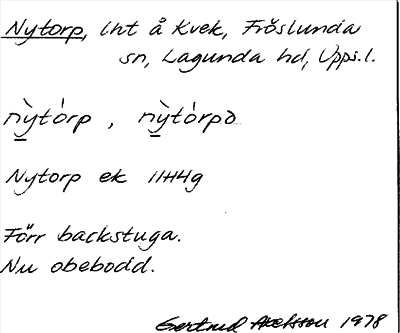 Nytorp, lht å Kvek, Fröslunda
sn, Lagunda hd, Upps. l.
nỳtórp , nỳtórpə
Nytorp ek 11H4g
Förr backstuga.
Nu obebodd.
Gertrud Axelsson 1978